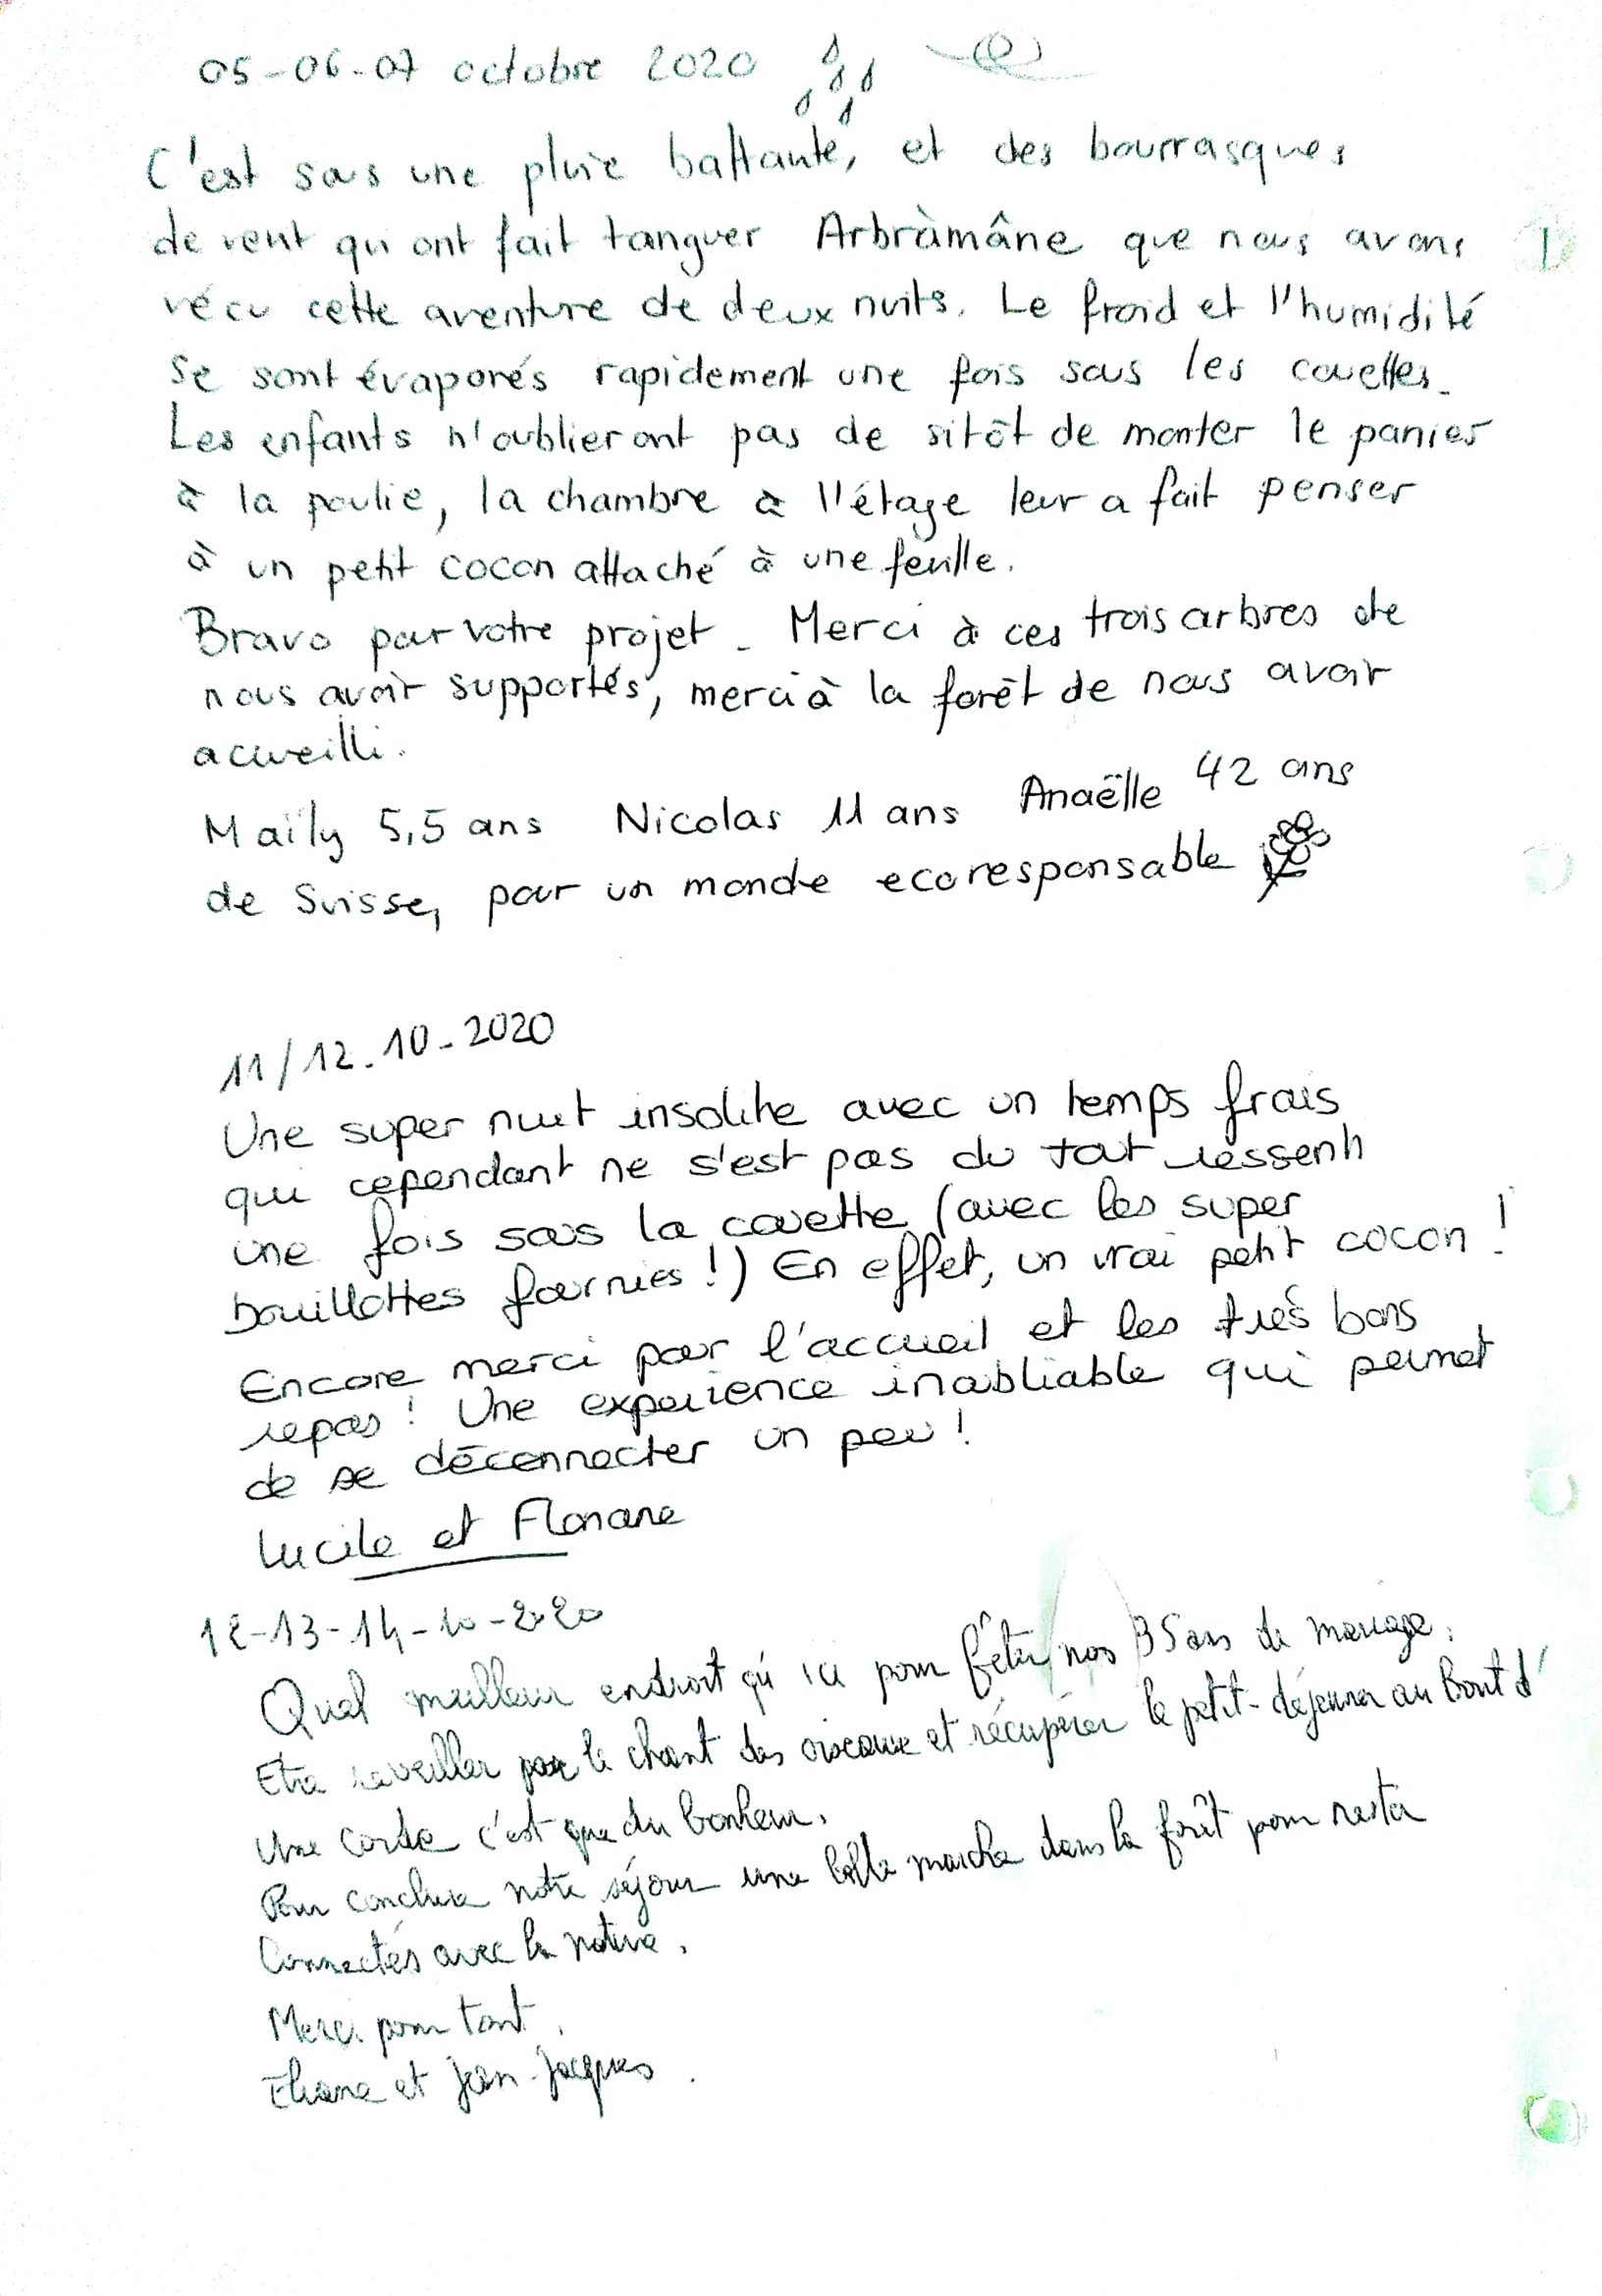 05-06-07 octobre 2020
C'est sous une pluie battante, et des bourrasques
de vent qui ont fait tanguer Arbràmâne que nous avons
vécu cette aventure de deux nuits. Le froid et l'humidité
se sont évaporés rapidement une fois sous les couettes.
Les enfants n'oublieront pas de sitôt de monter le panier
à la poulie, la chambre à l'étage leur a fait penser
à un petit cocon attaché à une feuille.
Bravo pour votre projet. Merci à ces trois arbres de
nous avoir supportés, merci à la forêt de nous avoir
accueilli.
Maïly 5,5 ans Nicolas 11 ans Anaëlle 42 ans
de Suisse, pour un monde ecoresponsable
11/12.10-2020
Une super nuit insolite avec un temps frais
qui cependant ne s'est pas du tout ressenti
une fois sous la couette (avec les super
bouillottes fournies !) En effet, un vrai petit cocon !
Encore merci pour l'accueil et les très bons
repas ! Une experience inoubliable qui permet
de se déconnecter un peu !
Lucile et Floriane
12-13-14-10-2020
Quel meilleur endroit qu'ici pour fêter nos 35 ans de mariage.
Etre réveiller par le chant des oiseaux et récupérer le petit-déjeuner au bout d'
une corde c'est que du bonheur.
Pour conclure notre séjour une belle marche dans la forêt pour rester
Connectés avec la nature.
Merci pour tout.
Eliane et Jean-Jacques.